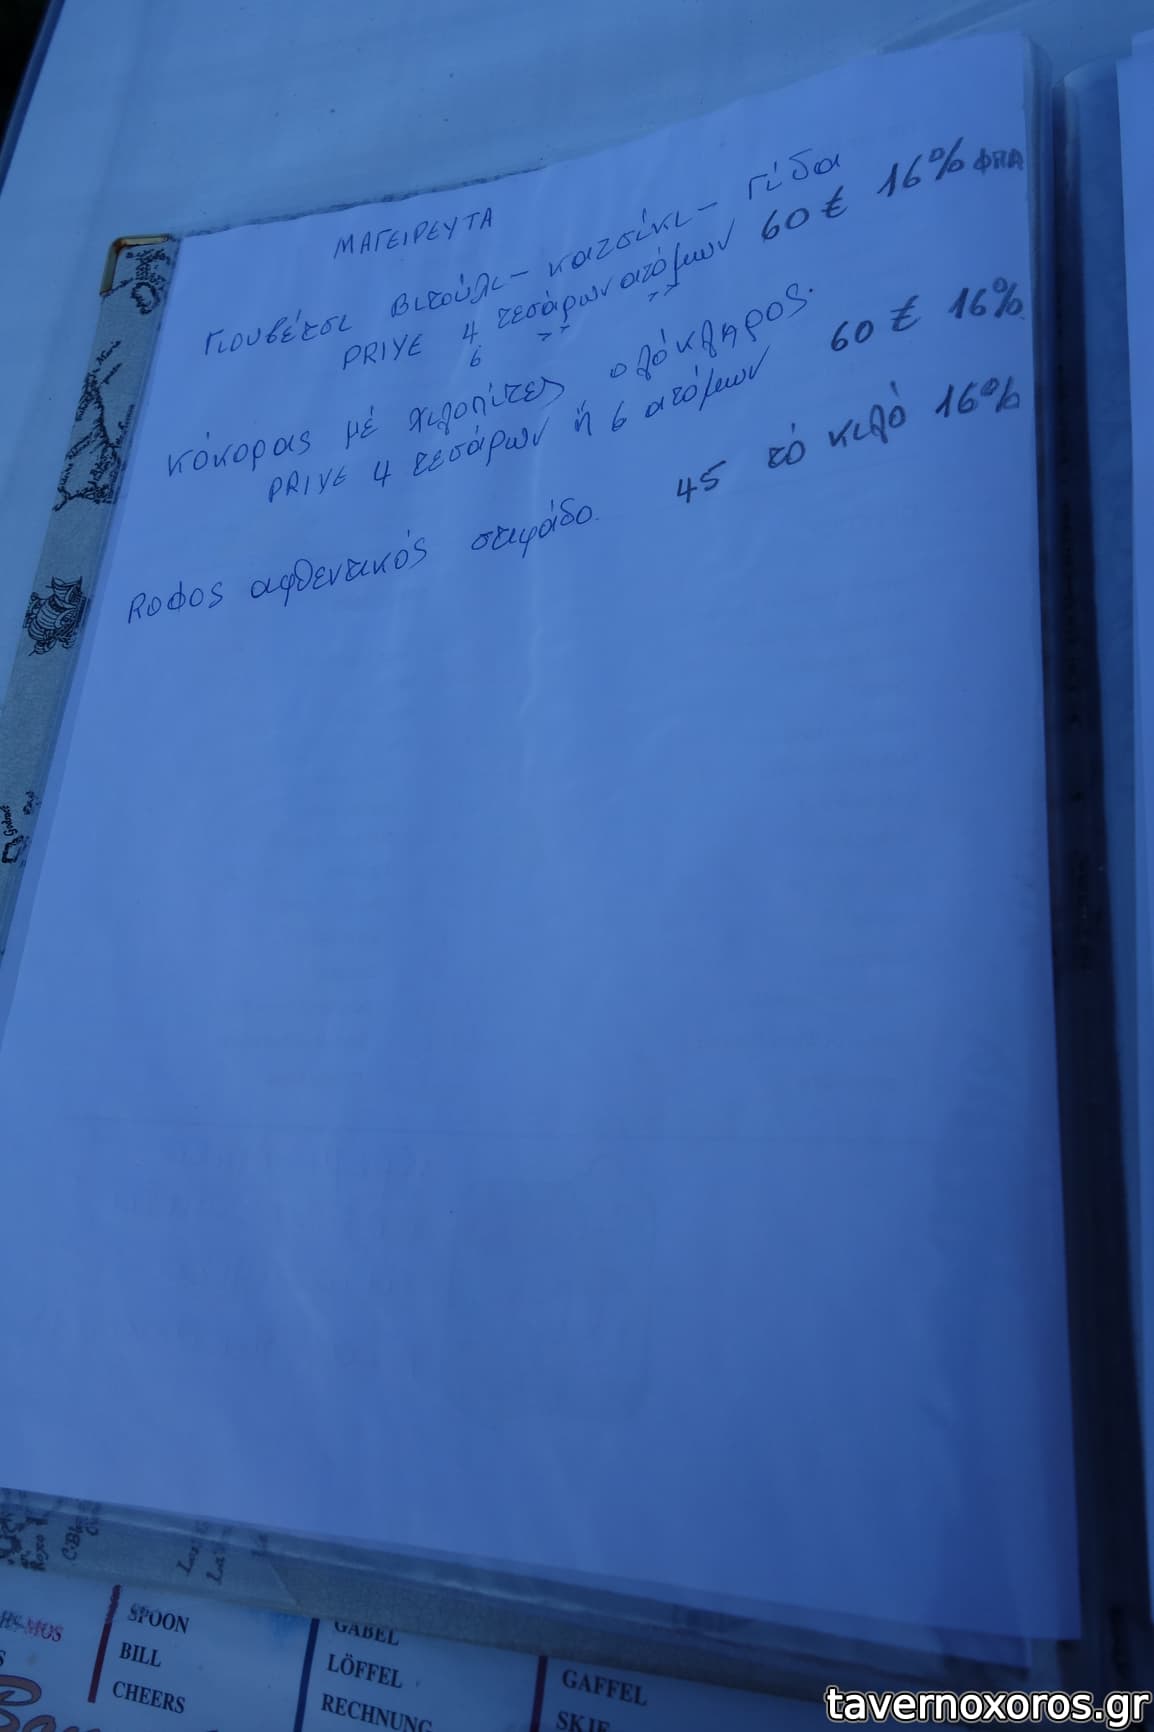 ΜΑΓΕΙΡΕΥΤΑ
Γιουβέτσι Βιτούλι - κατσίκι - Γίδα
PRIVE 4 τεσάρων ατόμων 60 € 16% ΦΠΑ
6 >> >>
κόκορας μέ χιλοπίτες ολόκληρος.
PRIVE 4 τεσάρων ή 6 ατόμων 60 € 16%
Rοφος αφθεντικός στιφάδο. 45 τό κιλό 16%
SPOON
BILL
CHEERS
GABEL
LÖFFEL
RECHNUNG
GAFFEL
SKJE
tavernoxoros.gr